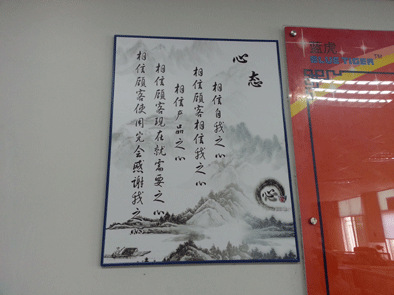 心态
相信自我之心
相信顾客相信我之心
相信产品之心
相信顾客现在就需要之心
相信顾客使用完会感谢我之心
心
蓝虎
BLUE TIGER™